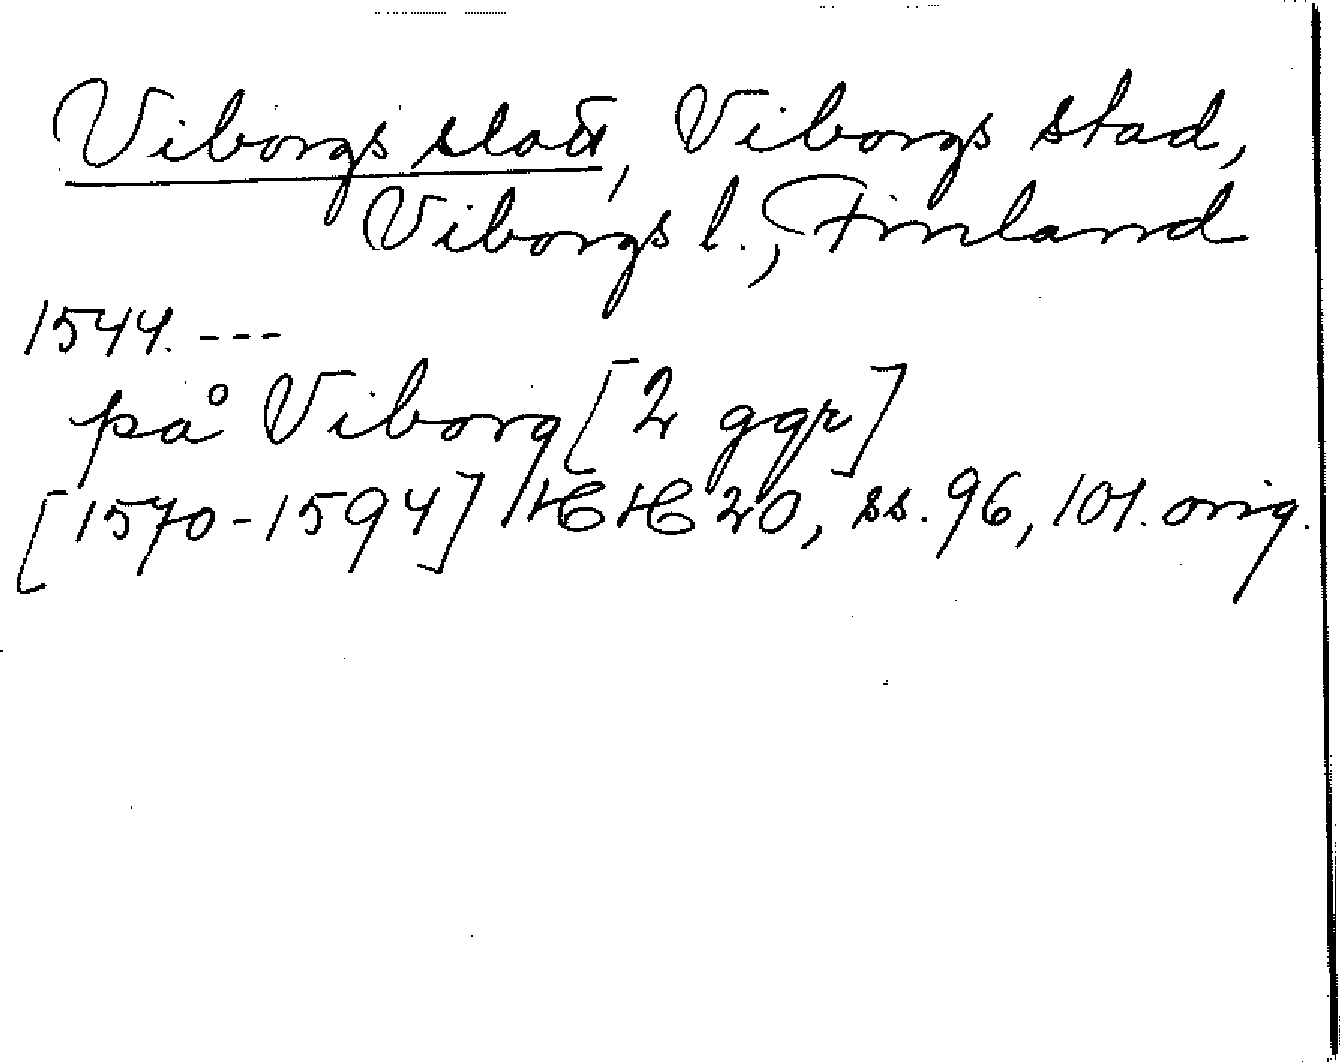 Viborgs slott, Viborgs stad,
Viborgs l., Finland
1544. ---
på Viborg [2 ggr]
[1570-1594] HH 20, ss. 96, 101. orig.